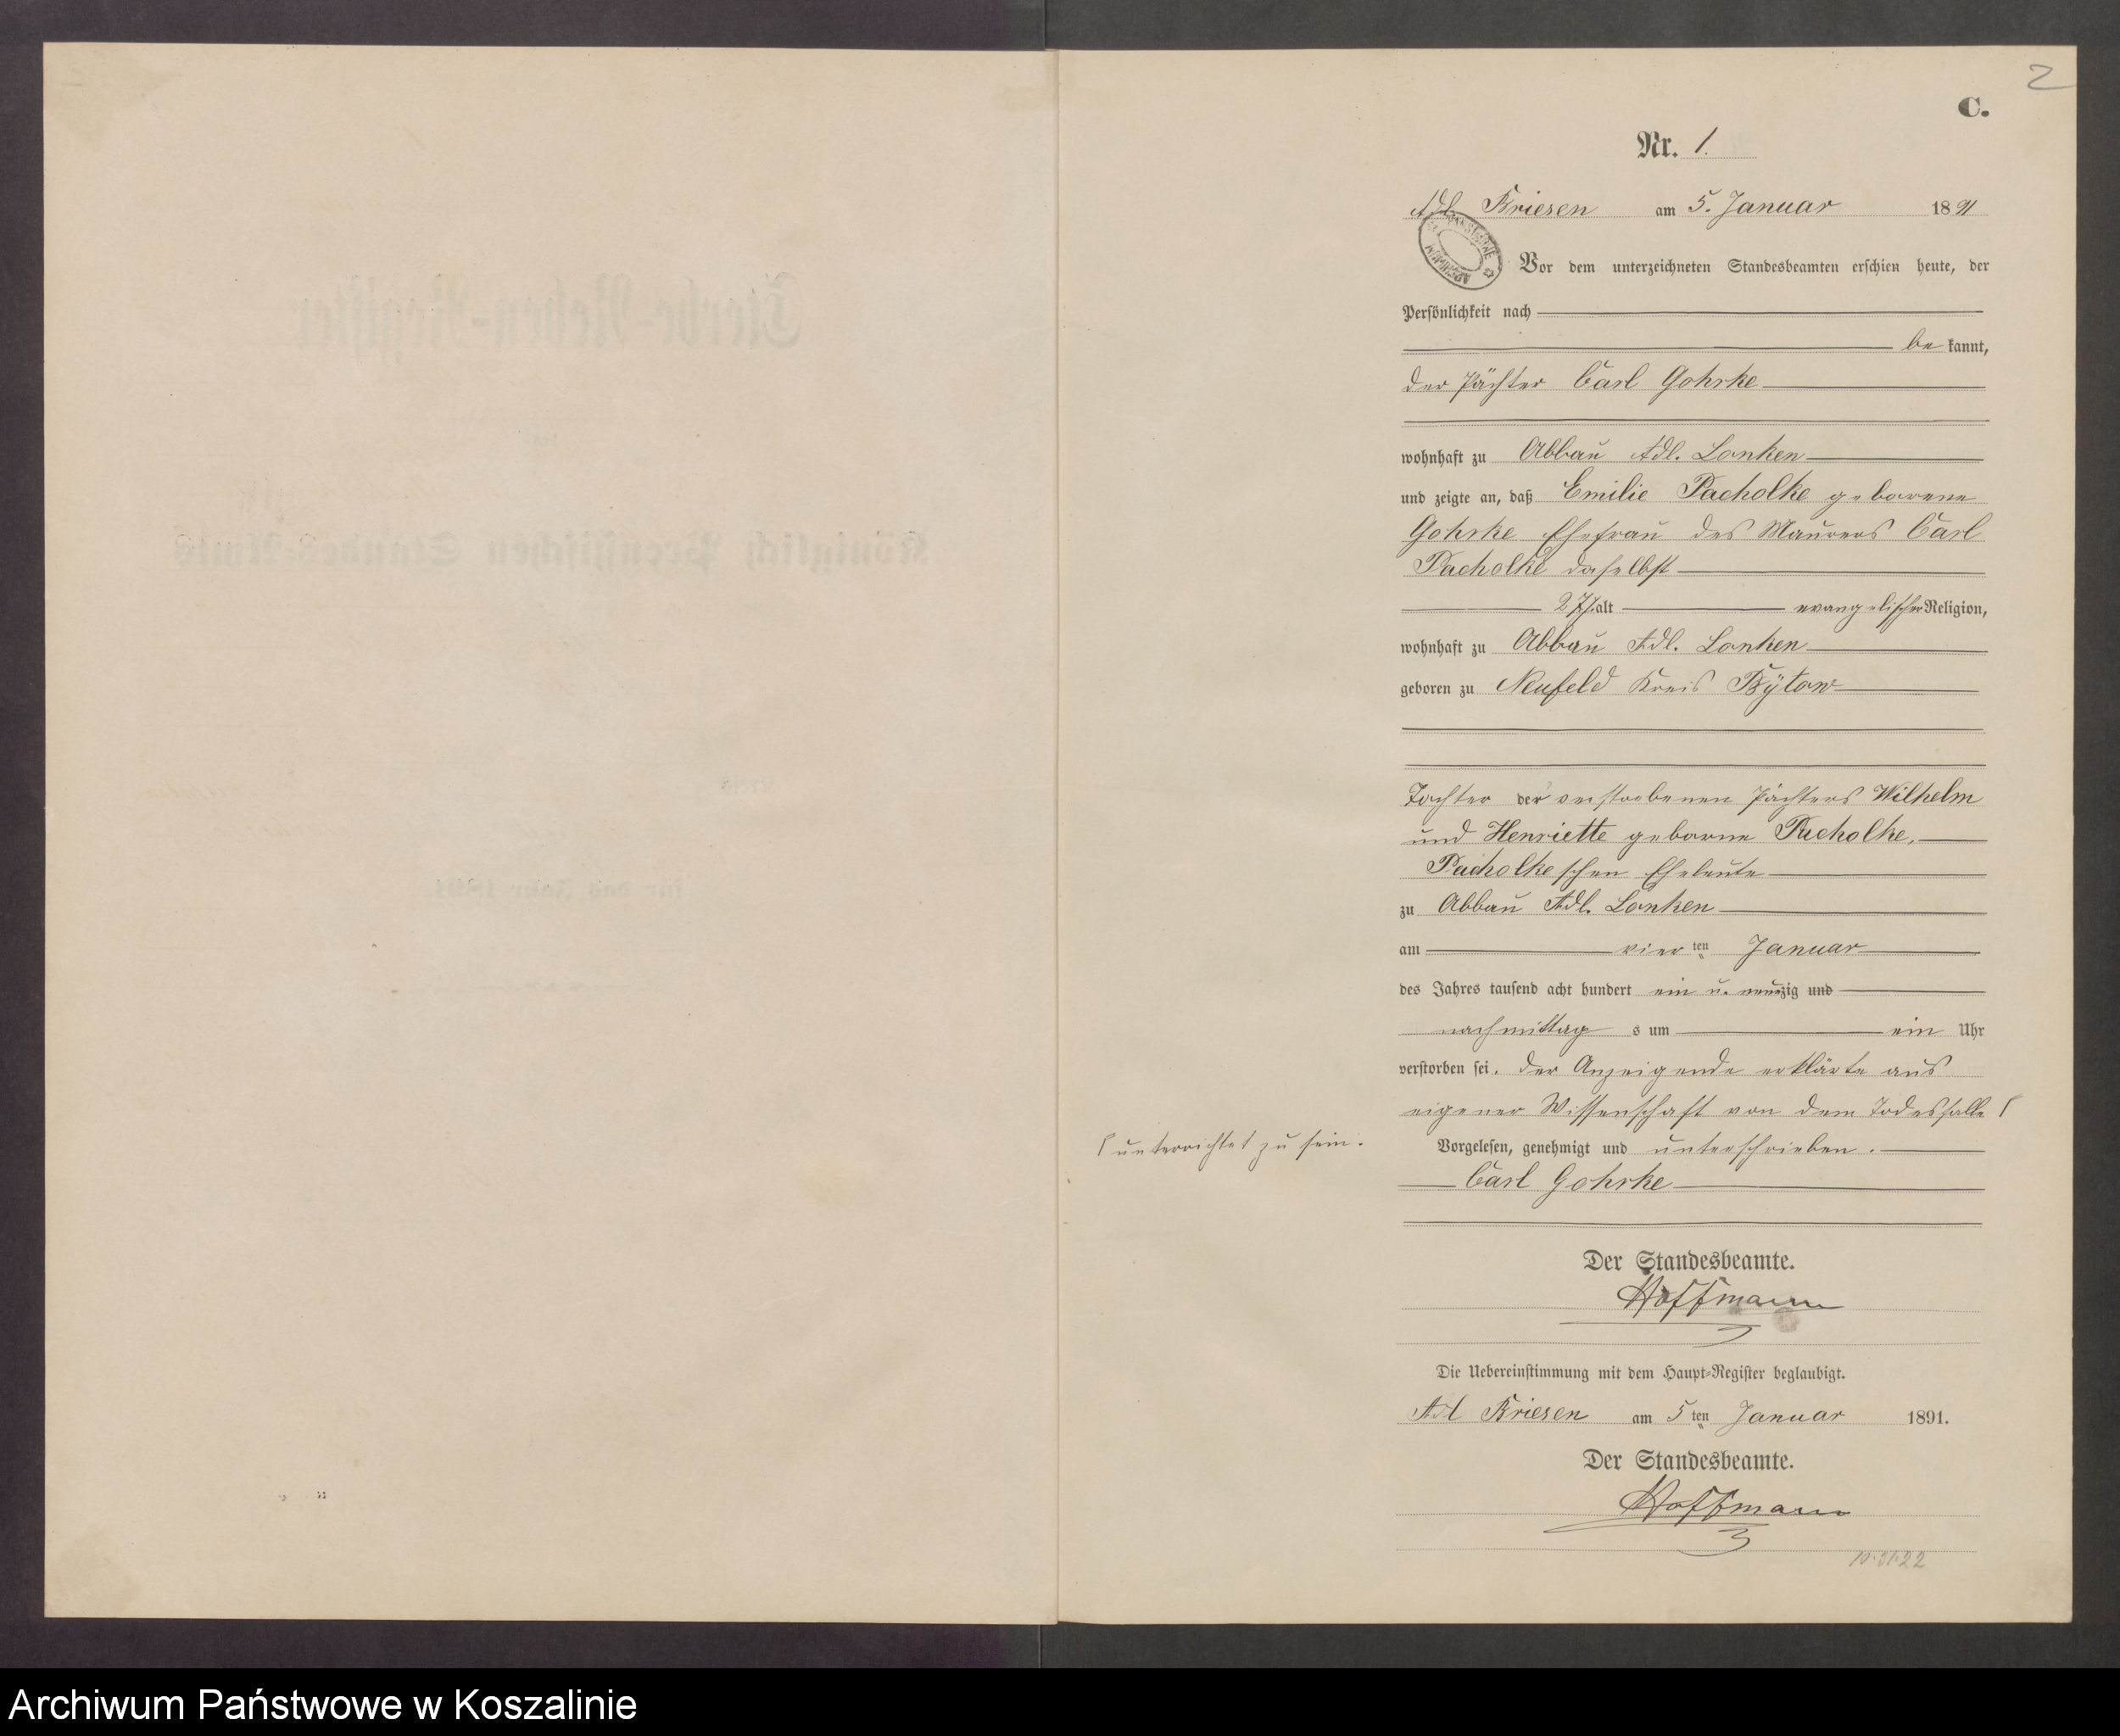 2
C.
Nr. 1.
Adl. Briesen am 5. Januar 1891
Vor dem unterzeichneten Standesbeamten erschien heute, der
Persönlichkeit nach
be kannt,
der Pächter Carl Gohrke
wohnhaft zu Abbau Adl. Lonken
und zeigte an, daß Emilie Pacholke geborene
Gohrke Ehefrau des Maurers Carl
Pacholke daselbst
27 J. alt evangelischer Religion,
wohnhaft zu Abbau Adl. Lonken
geboren zu Neufeld Kreis Bytow
Tochter der verstorbenen Pächters Wilhelm
und Henriette geborne Pacholke,
Pacholkeschen Eheleute
zu Abbau Adl. Lonken
am vier ten Januar
des Jahres tausend acht hundert ein u. neunzig und
nachmittag s um ein Uhr
verstorben sei. Der Anzeigende erklärte aus
eigener Wissenschaft von dem Todesfalle ſ
ſ unterrichtet zu sein.
Vorgelesen, genehmigt und unterschrieben.
Carl Gohrke
Der Standesbeamte.
Hoffmann
Die Uebereinstimmung mit dem Haupt-Register beglaubigt.
Adl Briesen am 5 ten Januar 1891.
Der Standesbeamte.
Hoffmann
Archiwum Państwowe w Koszalinie